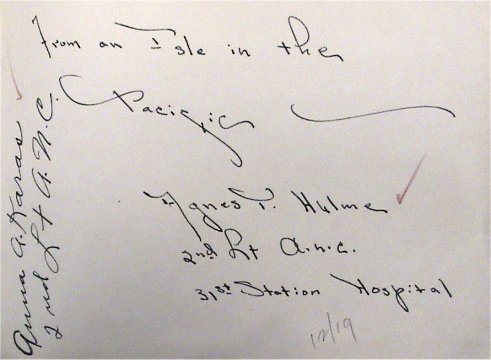 From an Isle in the
Pacific
Agnes T. Hulme
2nd Lt A.N.C.
31st Station Hospital
12/19
Anna A. Karas
2nd Lt A.N.C.